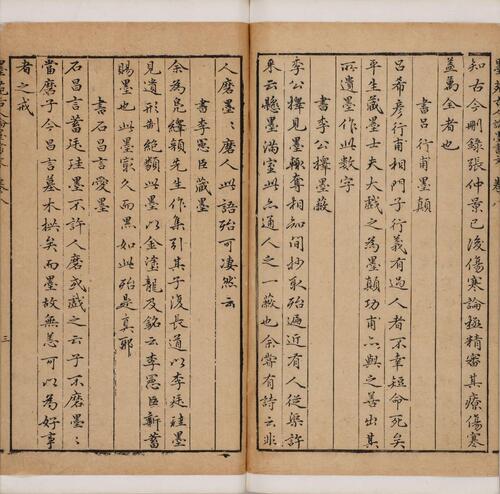 知古今刪錄張仲景已後傷寒論極精審其療傷寒
蓋萬全者也
書呂行甫墨顛
呂希彥行甫相門子行義有過人者不幸短命死矣
平生藏墨士大夫戲之為墨顛功甫亦與之善出其
所遺墨作此數字
書李公擇墨蔽
李公擇見墨輒奪相知間抄取殆遍近有人從梁許
來云懸墨滿室此亦通人之一蔽也余嘗有詩云非
人磨墨〻磨人此語殆可淒然云
書李憲臣藏墨
余為鳧繹顏先生作集引其子復長道以李廷珪墨
見遺形制絕類此墨以金塗龍及銘云李憲臣新蓄
賜墨也此墨最久而黑如此殆是真邪
書石昌言愛墨
石昌言蓄廷珪墨不許人磨或戲之云子不磨墨〻
當磨子今昌言墓木拱矣而墨故無恙可以為好事
者之戒
三